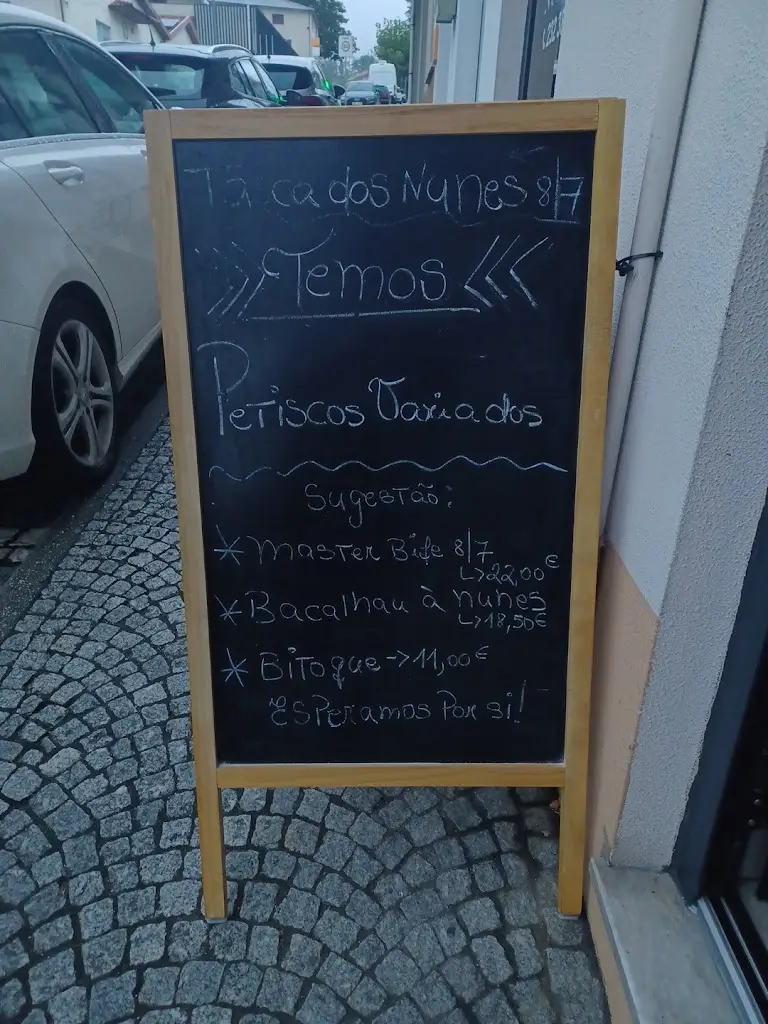 Tasca dos Nunes 8/7
>>> Temos <<<
Petiscos Variados
Sugestão:
* Master Bife 8/7
↳ 22,00€
* Bacalhau à nunes
↳ 18,50€
* Bitoque -> 11,00€
Esperamos Por si!